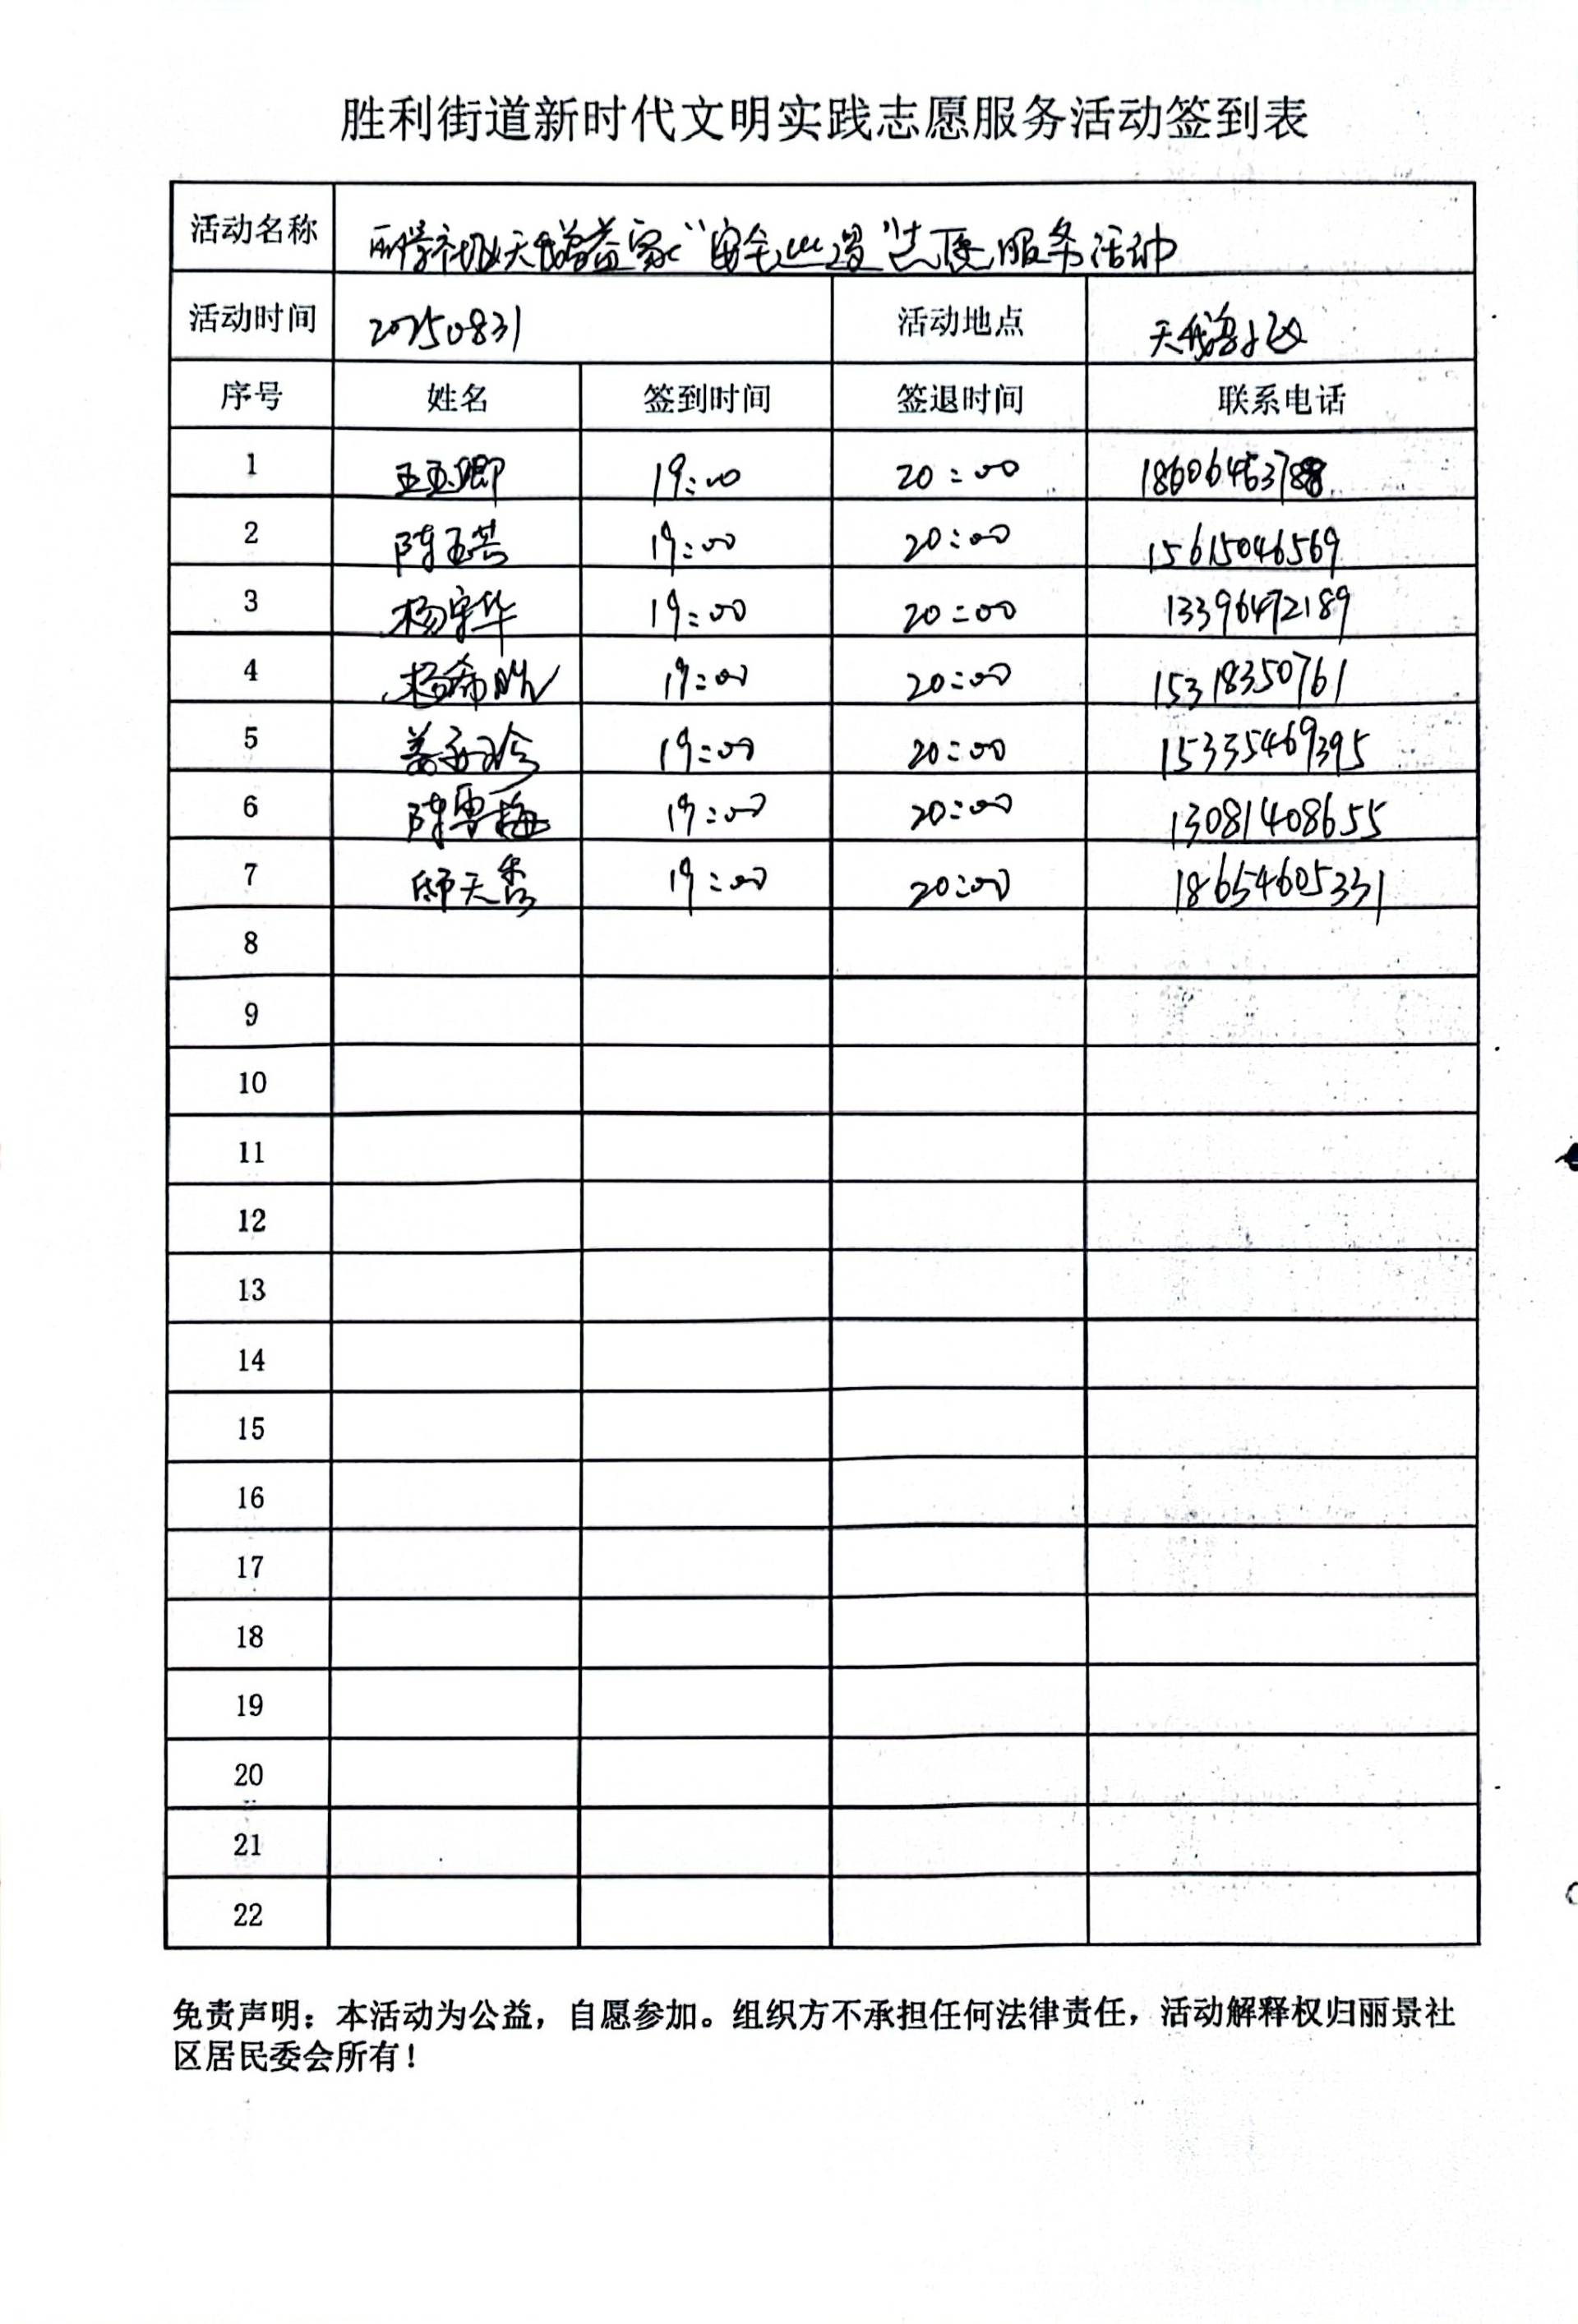 胜利街道新时代文明实践志愿服务活动签到表
活动名称 丽景社区天鹅湾益家“安全巡逻”志愿服务活动
活动时间 20250831 活动地点 天鹅湾小区
序号 姓名 签到时间 签退时间 联系电话
1 19:00 20:00 18606463788
2 陈玉芸 19:00 20:00 15615046569
3 杨宇华 19:00 20:00 13396472189
4 杨希 19:00 20:00 15318350761
5 姜玉珍 19:00 20:00 15335469395
6 陈雪梅 19:00 20:00 13081408655
7 邱天秀 19:00 20:00 18654605331
8
9
10
11
12
13
14
15
16
17
18
19
20
21
22
免责声明：本活动为公益，自愿参加。组织方不承担任何法律责任，活动解释权归丽景社
区居民委会所有！